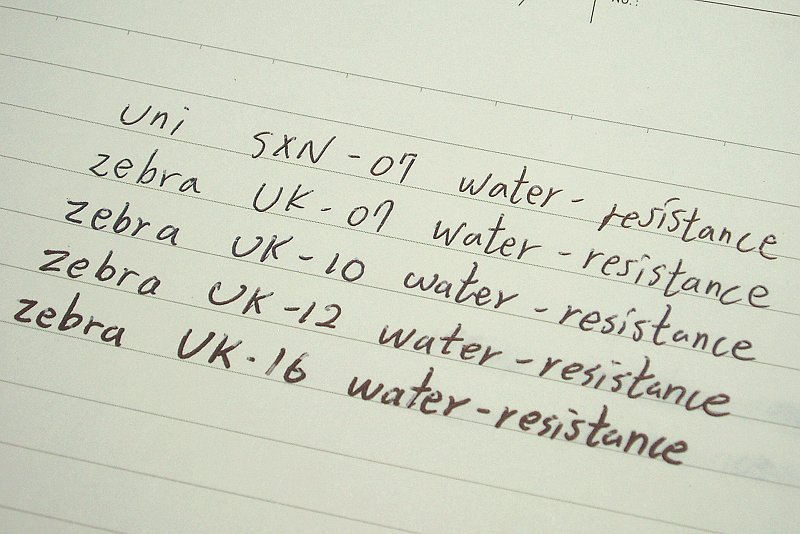 No.:
uni SXN-07 water-resistance
zebra UK-07 water-resistance
zebra UK-10 water-resistance
zebra UK-12 water-resistance
zebra UK-16 water-resistance